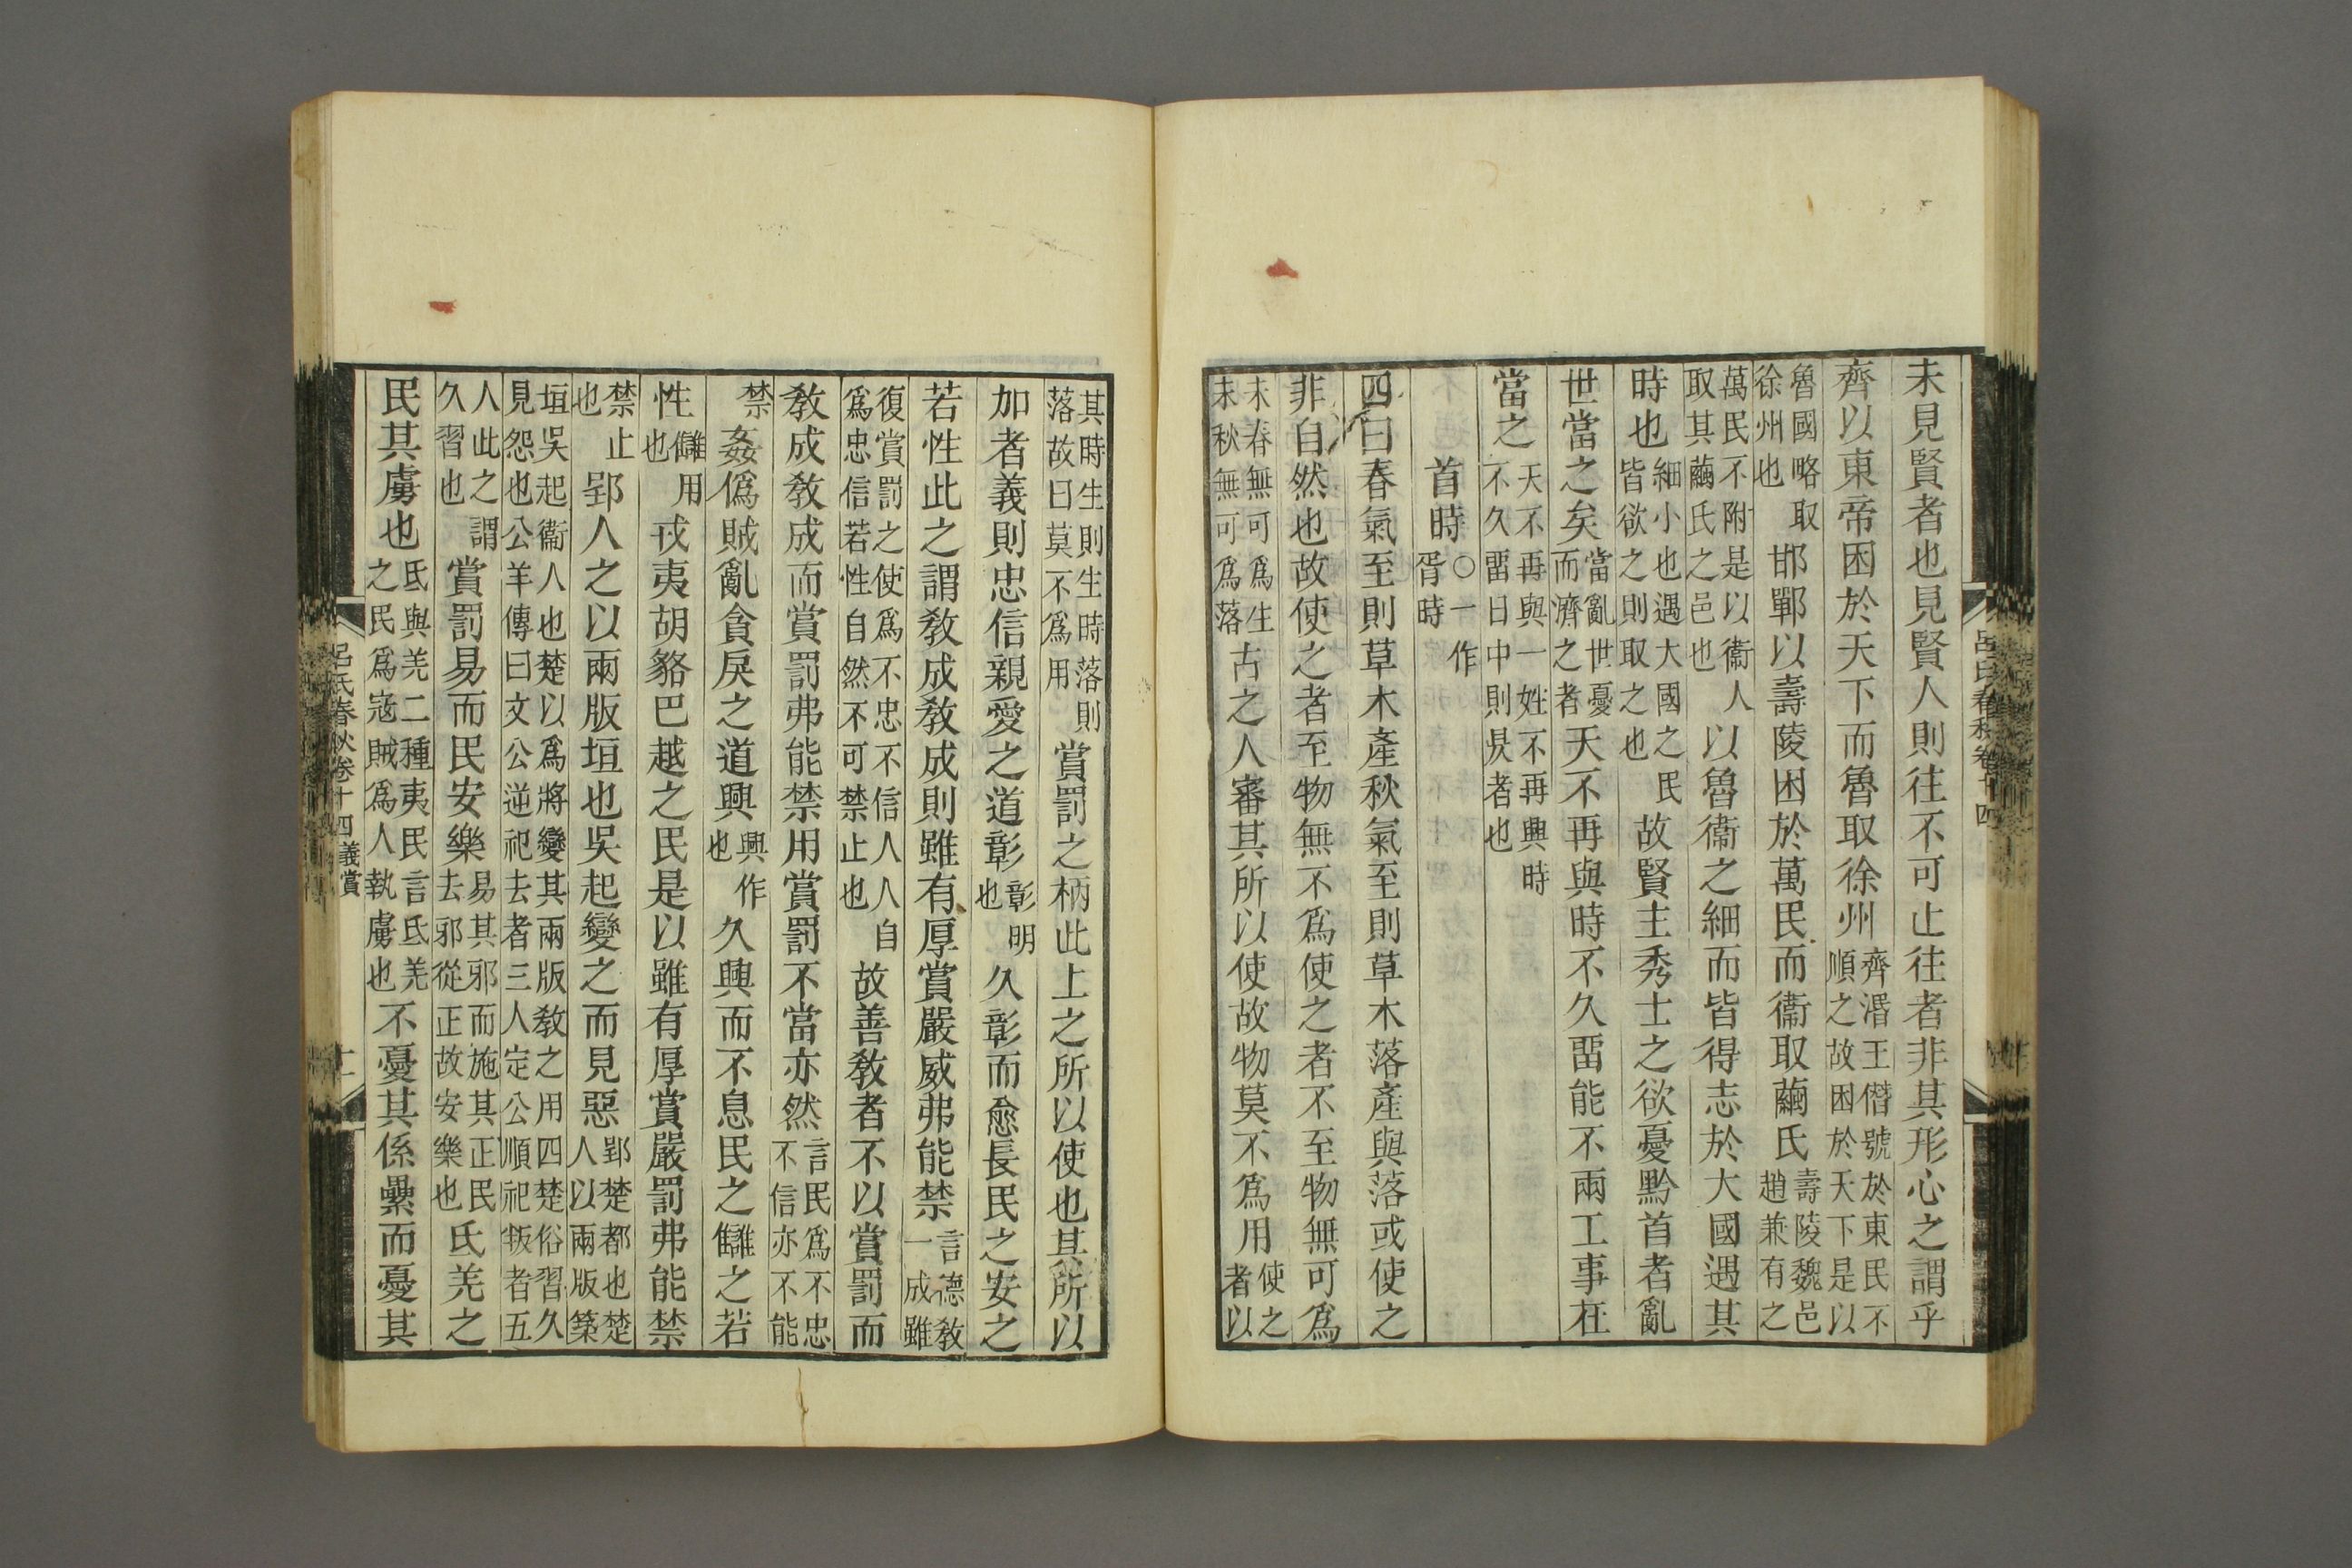 未見賢者也見賢人則往不可止往者非其形心之謂乎
齊以東帝困於天下而魯取徐州齊湣王僭號於東民不順之故困於天下是以
魯國略取徐州也邯鄲以壽陵困於萬民而衞取繭氏壽陵魏邑趙兼有之
萬民不附是以衞人取其繭氏之邑也以魯衞之細而皆得志於大國遇其
時也細小也遇大國之民皆欲之則取之也故賢主秀士之欲憂黔首者亂
世當之矣當亂世憂而濟之者天不再與時不久畱能不兩工事在
當之天不再與一姓不再興時不久畱日中則昃者也
首時○一作胥時
四曰春氣至則草木產秋氣至則草木落產與落或使之
非自然也故使之者至物無不爲使之者不至物無可爲
未春無可爲生未秋無可爲落古之人審其所以使故物莫不爲用使之者以
呂氏春秋卷十四
其時生則生時落則落故曰莫不爲用賞罰之柄此上之所以使也其所以
加者義則忠信親愛之道彰彰明也久彰而愈長民之安之
若性此之謂敎成敎成則雖有厚賞嚴威弗能禁言德敎一成雖
復賞罰之使爲不忠不信人人自爲忠信若性自然不可禁止也故善敎者不以賞罰而
敎成敎成而賞罰弗能禁用賞罰不當亦然言民爲不忠不信亦不能
禁姦僞賊亂貪戾之道興興作也久興而不息民之讎之若
性讎用也戎夷胡貉巴越之民是以雖有厚賞嚴罰弗能禁
禁止也郢人之以兩版垣也吳起變之而見惡郢楚都也楚人以兩版築
垣吳起衞人也楚以爲將變其兩版敎之用四楚俗習久見怨也公羊傳曰文公逆祀去者三人定公順祀叛者五
人此之謂久習也賞罰易而民安樂易其邪而施其正民去邪從正故安樂也氐羌之
民其虜也氐與羌二種夷民言氐羌之民爲寇賊爲人執虜也不憂其係纍而憂其
呂氏春秋卷十四義賞